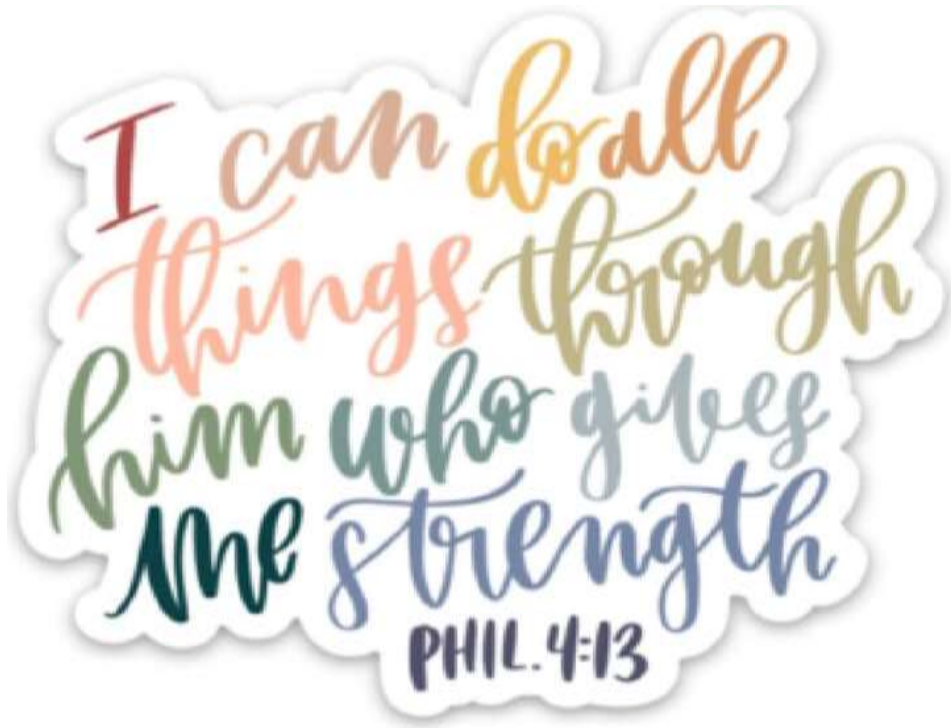 I can do all
things through
him who gives
me strength
PHIL. 4:13